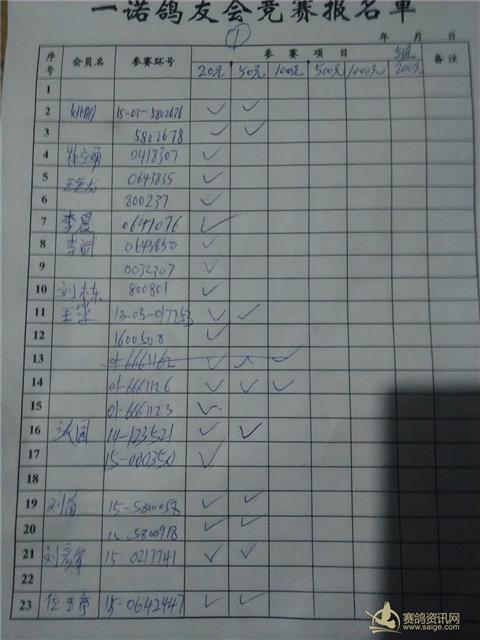 一诺鸽友会竞赛报名单
①
年 月 日
序号 会员名 参赛环号 参 赛 项 目 备注
20元 50元 100元 500元 1000元 200元
1
2 15-03-5802676 ✓ ✓
3 5802678 ✓ ✓
4 0418307 ✓
5 0643835 ✓
6 800237 ✓
7 李晨 0641076 ✓
8 李斌 0643850 ✓
9 0032307 ✓
10 800801 ✓
11 13-03-017753 ✓ ✓
12 1600508 ✓
13 01-6661162 ✓ ✓ ✓
14 01-6661126 ✓ ✓ ✓
15 01-6661123 ✓
16 14-123521 ✓ ✓
17 15-000350 ✓
18
19 15-5800058 ✓ ✓
20 15 5800918 ✓ ✓
21 15 0217741 ✓ ✓
22
23 15-0642447 ✓ ✓
赛鸽资讯网
www.saige.com